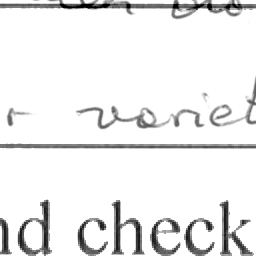 r variet
nd check